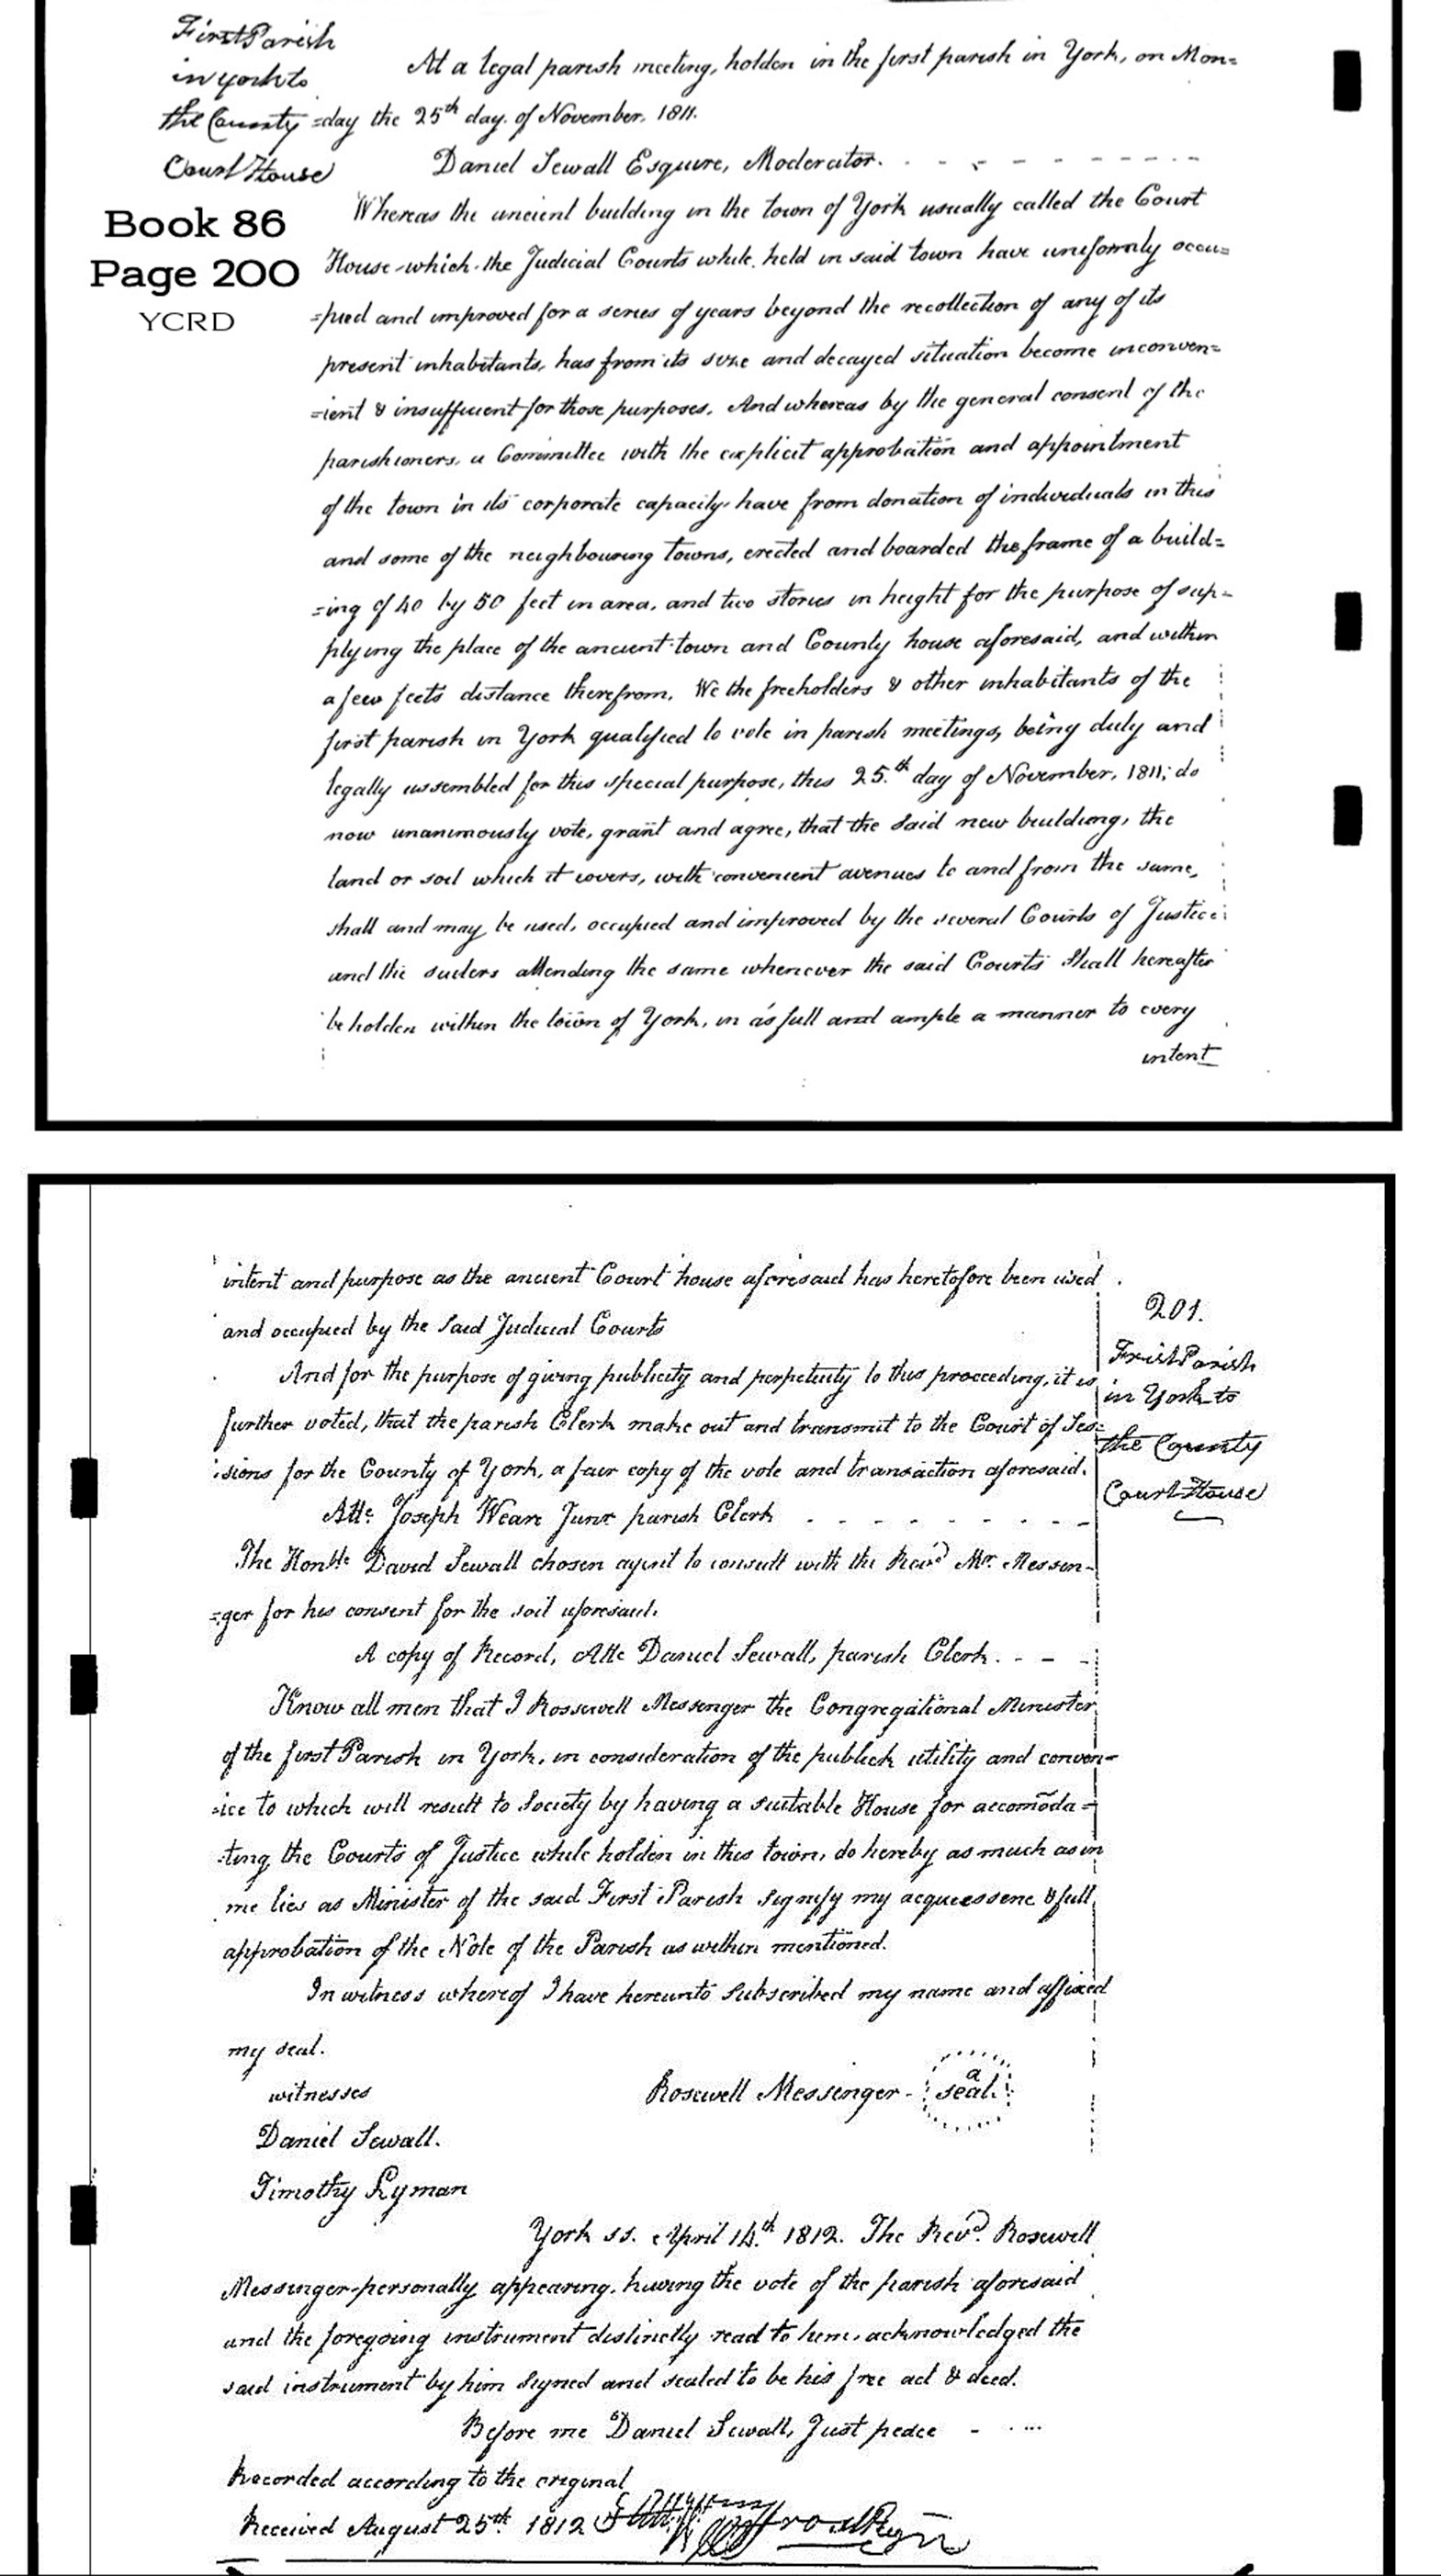 First Parish
in York to
the County
Court House
Book 86
Page 200
YCRD
At a legal parish meeting, holden in the first parish in York, on Mon=
=day the 25th day of November, 1811.
Daniel Sewall Esquire, Moderator.
Whereas the ancient building in the town of York usually called the Court
House which the Judicial Courts while held in said town have uniformly occu=
=pied and improved for a series of years beyond the recollection of any of its
present inhabitants, has from its size and decayed situation become inconven=
=ient & insufficient for those purposes. And whereas by the general consent of the
parishioners, a Committee with the explicit approbation and appointment
of the town in its corporate capacity have from donation of individuals in this
and some of the neighbouring towns, erected and boarded the frame of a build=
=ing of 40 by 50 feet in area, and two stories in height for the purpose of sup=
plying the place of the ancient town and County house aforesaid, and within
a few feets distance therefrom. We the freeholders & other inhabitants of the
first parish in York qualified to vote in parish meetings, being duly and
legally assembled for this special purpose, this 25.th day of November, 1811; do
now unanimously vote, grant and agree, that the said new building, the
land or soil which it covers, with convenient avenues to and from the same,
shall and may be used, occupied and improved by the several Courts of Justice
and the suiters attending the same whenever the said Courts shall hereafter
be holden within the town of York, in as full and ample a manner to every
intent
intent and purpose as the ancient Court house aforesaid has heretofore been used
and occupied by the said Judicial Courts
And for the purpose of giving publicity and perpetuity to this proceeding, it is
further voted, that the parish Clerk make out and transmit to the Court of Ses=
=sions for the County of York, a fair copy of the vote and transaction aforesaid.
Atte. Joseph Weare Junr parish Clerk
The Honble David Sewall chosen agent to consult with the Revd Mr. Messen=
=ger for his consent for the soil aforesaid.
A copy of Record, Atte Daniel Sewall, parish Clerk.
Know all men that I Rossewell Messenger the Congregational Minister
of the first Parish in York, in consideration of the publick utility and conven=
=ice to which will result to Society by having a suitable House for accomoda=
=ting the Courts of Justice while holden in this town, do hereby as much as in
me lies as Minister of the said First Parish signify my acquessene & full
approbation of the Vote of the Parish as within mentioned.
In witness whereof I have hereunto subscribed my name and affixed
my seal.
witnesses
Rosewell Messenger - a seal.
Daniel Sewall.
Timothy Lyman
York ss. April 14.th 1812. The Revd. Rosewell
Messenger personally appearing, having the vote of the parish aforesaid
and the foregoing instrument distinctly read to him, acknowledged the
said instrument by him signed and sealed to be his free act & deed.
Before me Daniel Sewall, Just peace
Recorded according to the original
Received August 25th 1812
201.
First Parish
in York to
the County
Court House